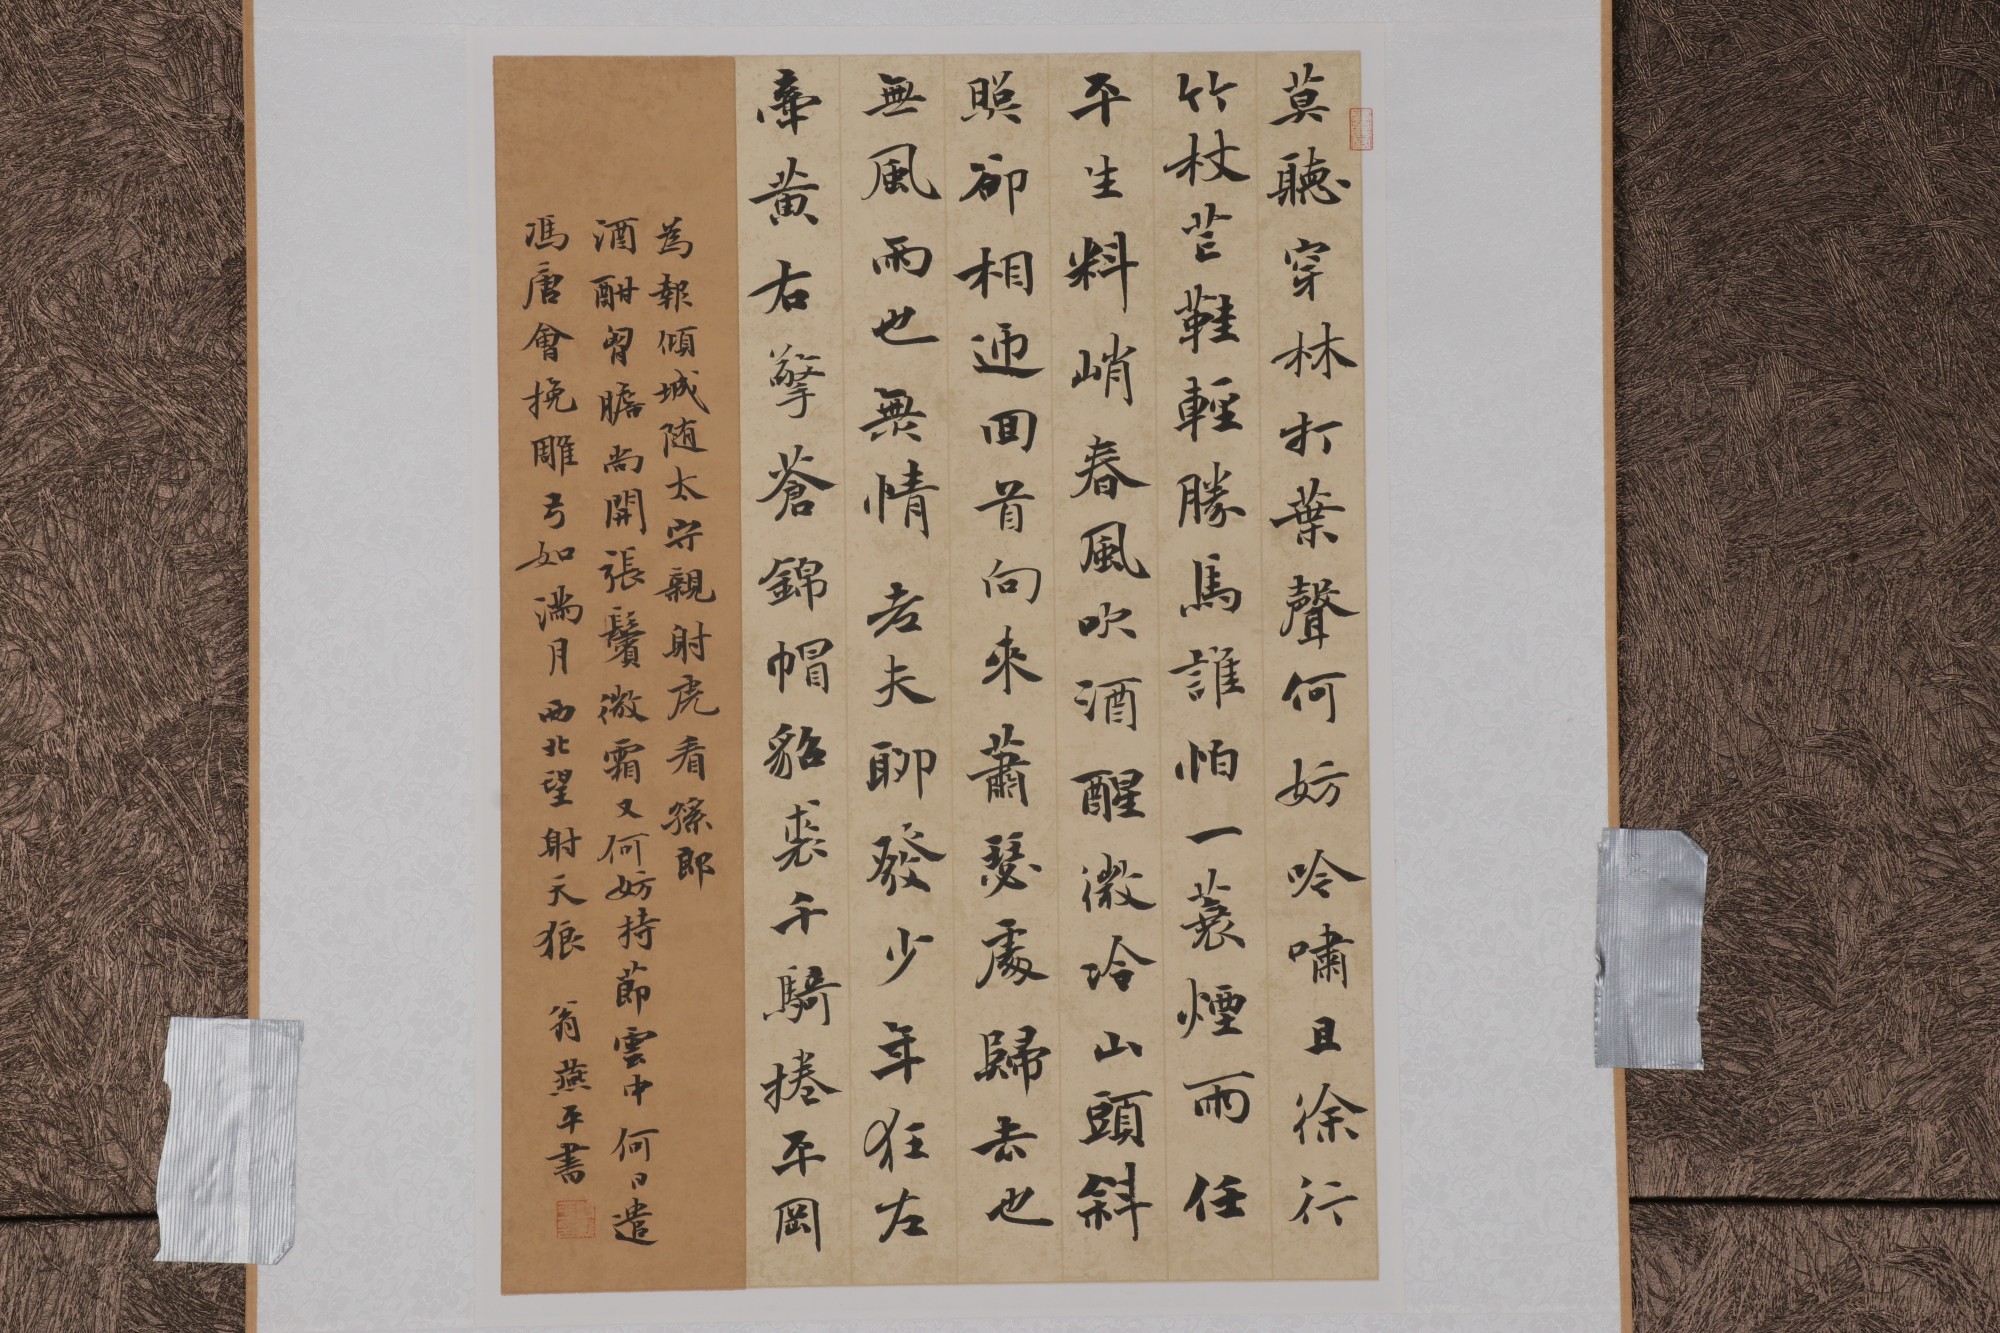 莫聽穿林打葉聲何妨吟嘯且徐行
竹杖芒鞋輕勝馬誰怕一蓑煙雨任
平生料峭春風吹酒醒微冷山頭斜
照卻相迎回首向來蕭瑟處歸去也
無風雨也無情老夫聊發少年狂左
牽黃右擎蒼錦帽貂裘千騎捲平岡
為報傾城随太守親射虎看孫郎
酒酣胷膽尚開張鬢微霜又何妨持節雲中何日遣
馮唐會挽雕弓如滿月西北望射天狼 翁燕平書